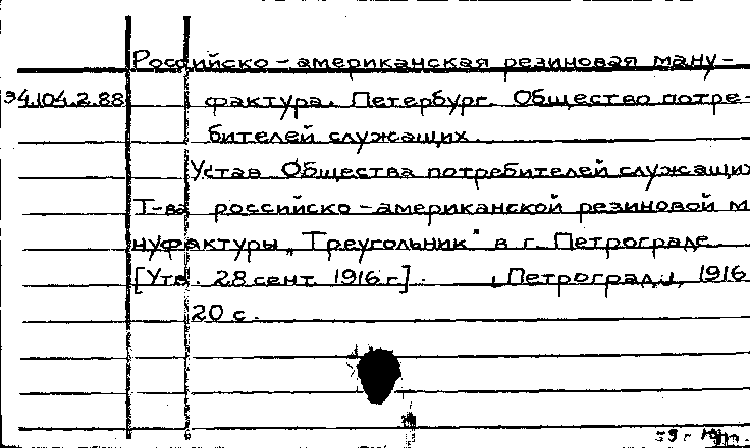 Российско-американская резиновая ману-
34.104.2.88 фактура. Петербург. Общество потре-
бителей служащих.
Устав Общества потребителей служащих
Т-ва российско-американской резиновой м
нуфактуры „Треугольник" в г. Петрограде.
[Утв. 28 сент. 1916 г.]. [Петроград], 1916
20 с.